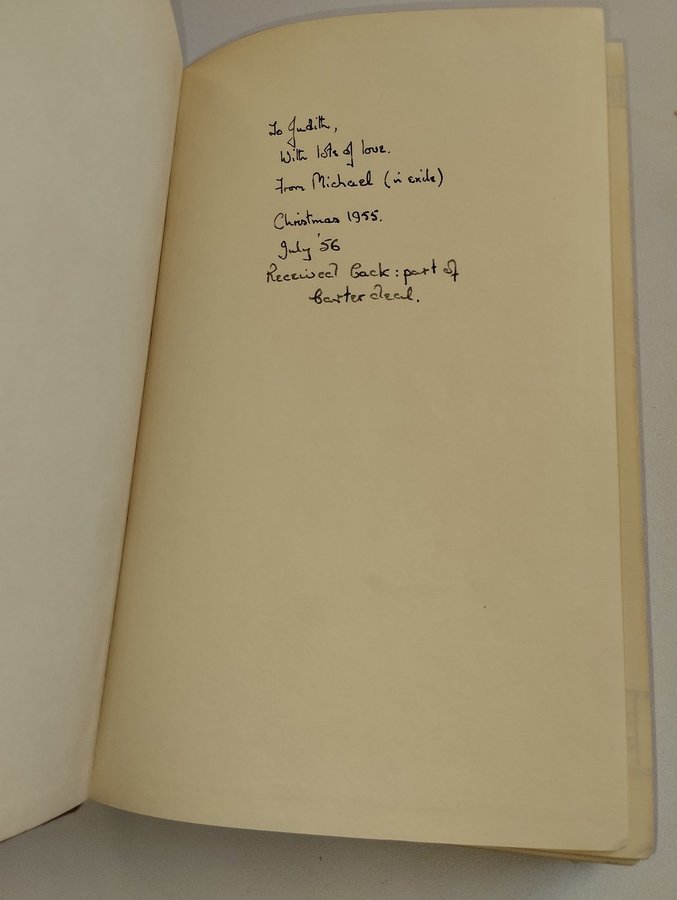 To Judith,
With lots of love.
From Michael (in exile)
Christmas 1955.
July '56
Received back: part of
barter deal.